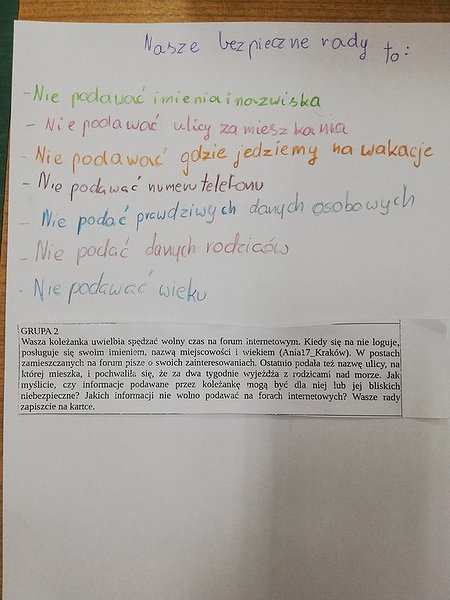 Nasze bezpieczne rady to:
- Nie podawać imienia i nazwiska
- Nie podawać ulicy zamieszkania
- Nie podawać gdzie jedziemy na wakacje
- Nie podawać numeru telefonu
- Nie podać prawdziwych danych osobowych
- Nie podać danych rodziców
- Nie podawać wieku
GRUPA 2
Wasza koleżanka uwielbia spędzać wolny czas na forum internetowym. Kiedy się na nie loguje,
posługuje się swoim imieniem, nazwą miejscowości i wiekiem (Ania17_Kraków). W postach
zamieszczanych na forum pisze o swoich zainteresowaniach. Ostatnio podała też nazwę ulicy, na
której mieszka, i pochwaliła się, że za dwa tygodnie wyjeżdża z rodzicami nad morze. Jak
myślicie, czy informacje podawane przez koleżankę mogą być dla niej lub jej bliskich
niebezpieczne? Jakich informacji nie wolno podawać na forach internetowych? Wasze rady
zapiszcie na kartce.